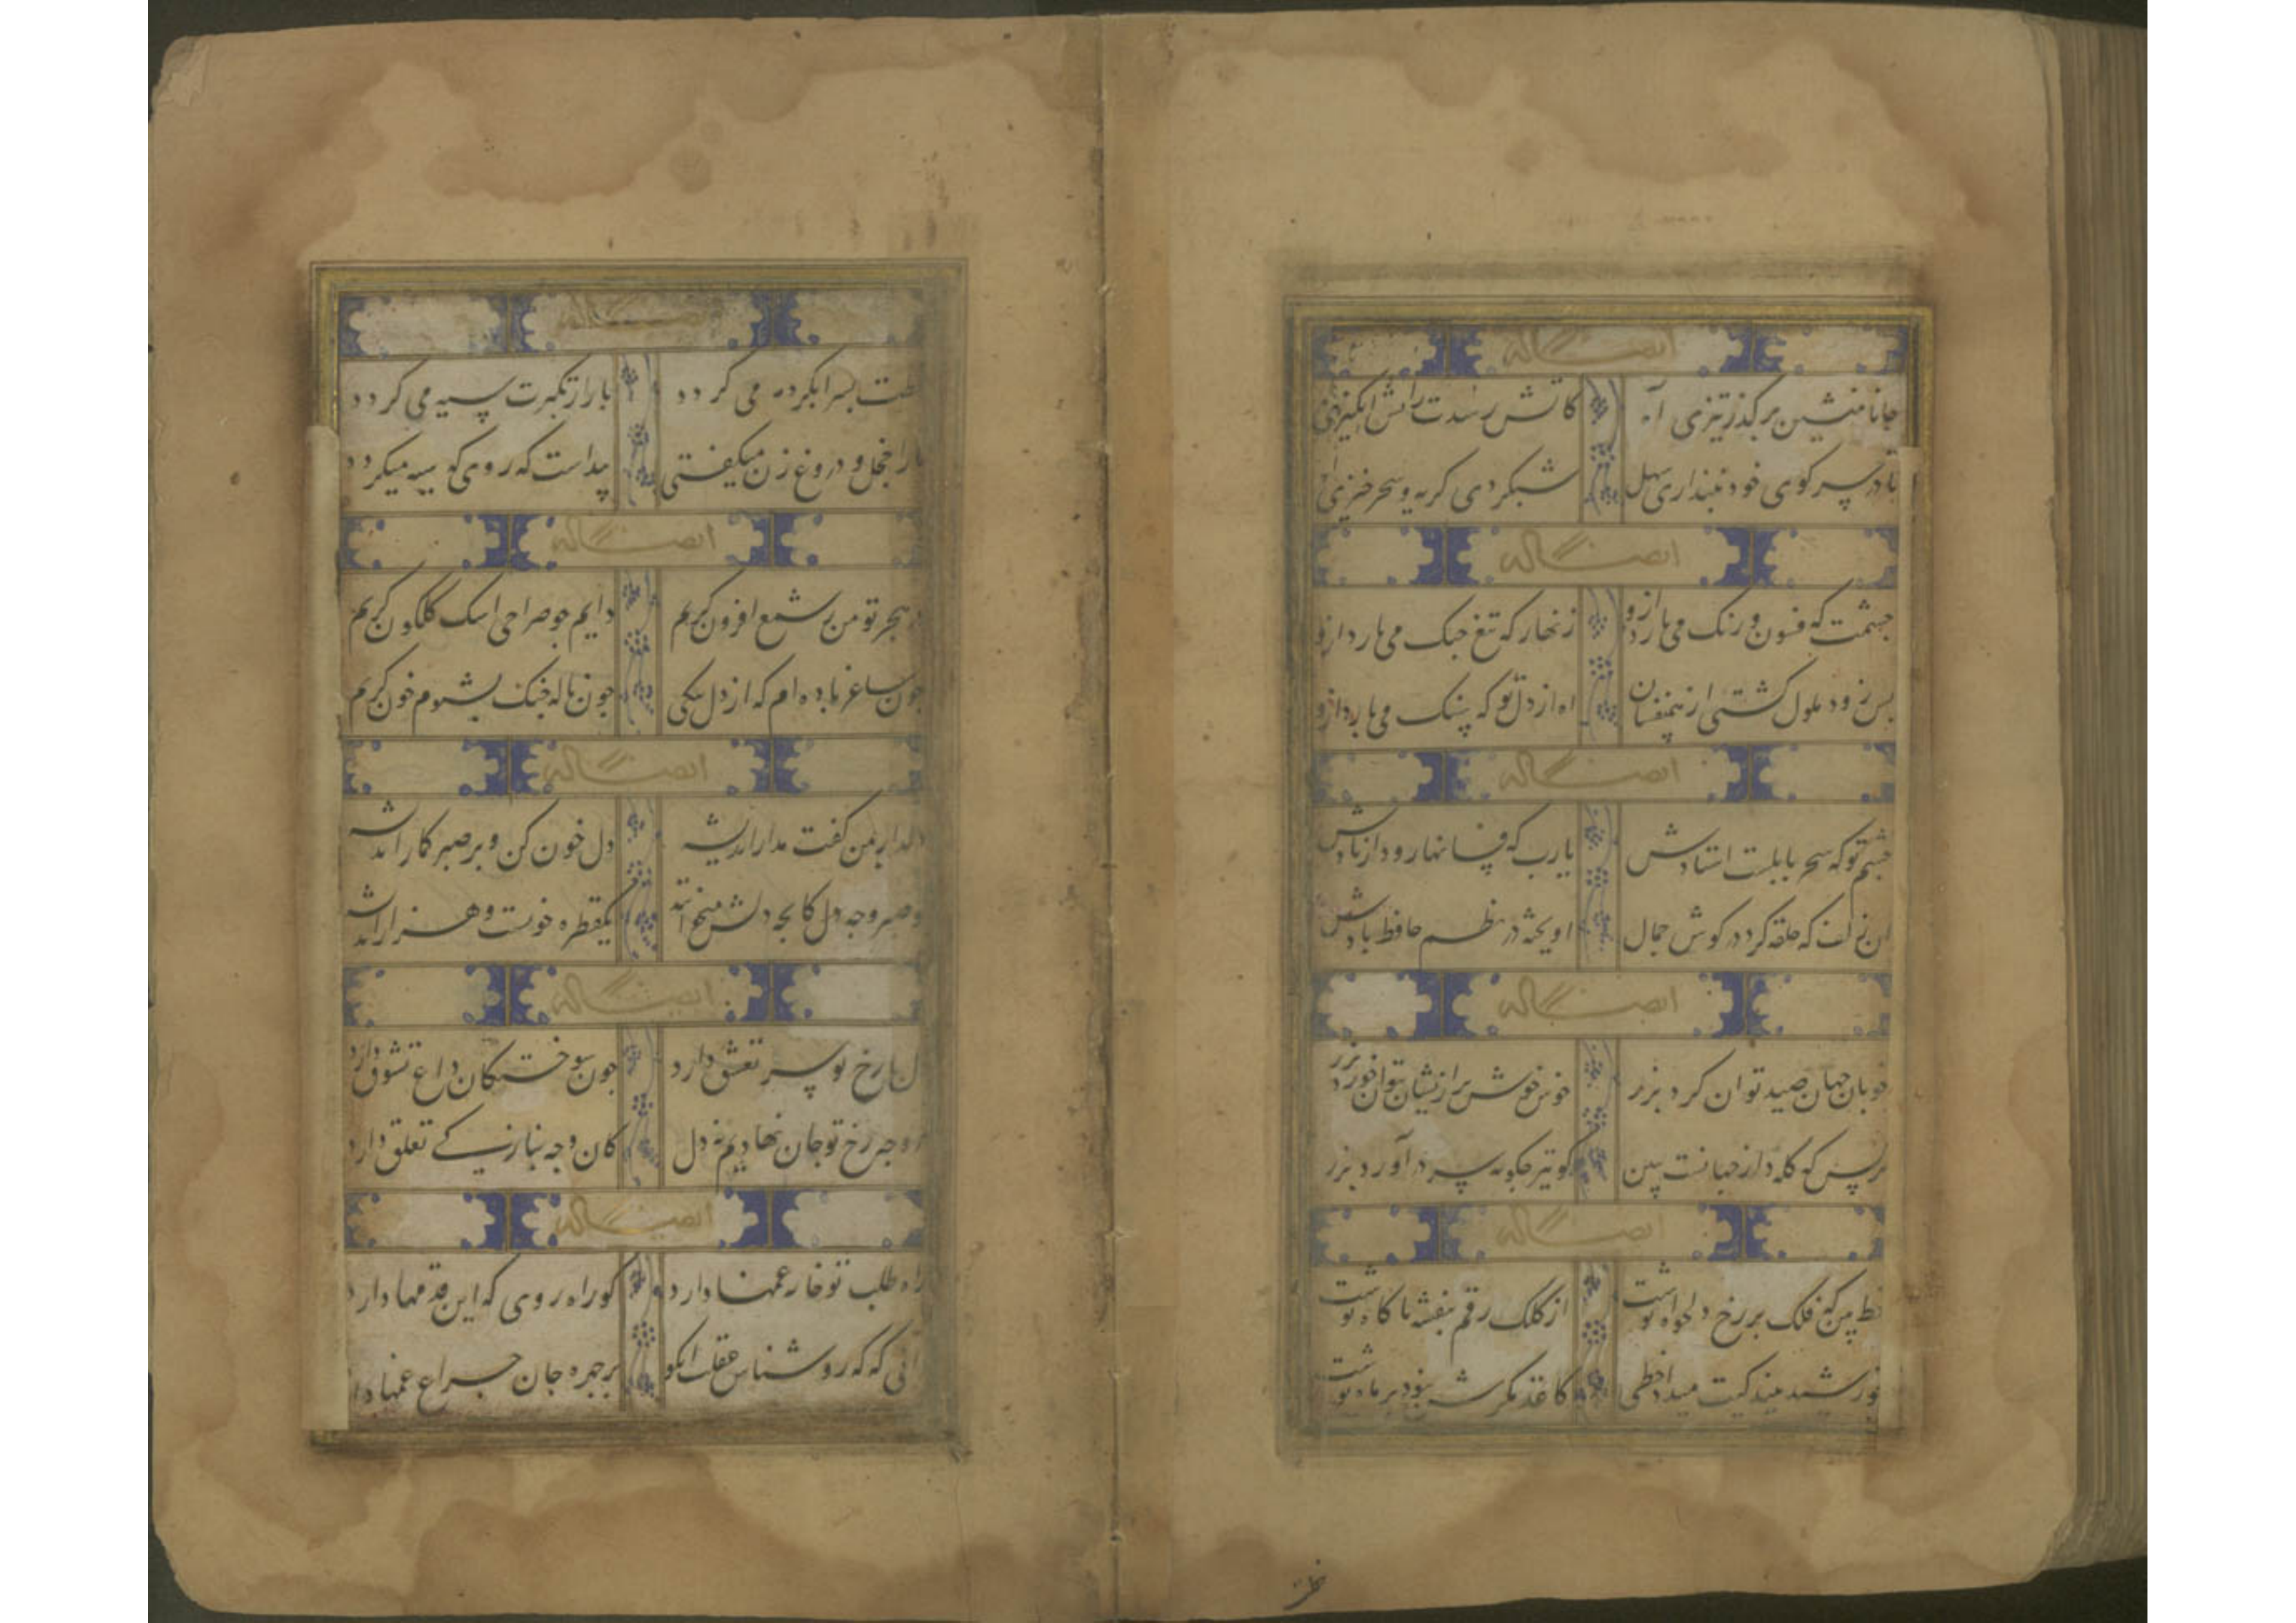 ایضاً له
جانا منشین بر گذر تیزی آه کاتش رسدت ز آتش انگیزی
تا در سر کوی خود نپنداری سهل شبگردی گریه و سحر خیزی
ایضاً له
جشمت که فسون و رنک می بارد ازو زنهار که تیغ جنک می بارد ازو
بس زود ملول کشتی از همنفسان اه از دل تو که سنک می بارد ازو
ایضاً له
جشم تو که سحر بابلست استادش یا رب که فسانها رود از یادش
ان زلف که حلقه کرد در کوش جمال اویخته در نظم حافظ بادش
ایضاً له
خوبان جهان صید توان کرد بزر خوش خوش بر ازیشان بتوان خورد بزر
نرکس که کله دار جهانست ببین کو نیز جکونه سر در آورد بزر
ایضاً له
خط بین که فلک بر رخ دلخواه تو از کلک رقم بنفشه تا کاه تو
خورشید کاغذ مکرش نبود بر ماه تو
نظر
ایضاً له
می کردد بار از تکبرت سیه می کردد
را خجل و دروغ زن میکفتی پیداست که روی که سیه میکردد
ایضاً له
هجر تو من ز شمع افزون کریم دایم جو صراحی اشک کلکون کریم
جون ساغر باده ام که از دل تنکی جون ناله جنک بشنوم خون کریم
ایضاً له
دلدار بمن کفت مدار اندیشه دل خون کن و بر صبر کمار اندیشه
کو صبر و جه دل کانجه دلش میخوانند یکقطره خونست و هزار اندیشه
ایضاً له
رخ تو سر تعشق دارد جون سوختکان داغ تشوق دارد
وجه رخ تو جان نهادیم نه دل کان وجه بنازکی تعلق دارد
ایضاً له
راه طلب تو خار غمها دارد کو راه روی که این قدمها دارد
دانی که که روشناس عقلست انکو بر جهره جان جراغ غمها دارد